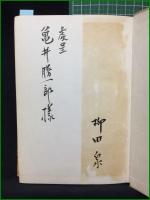 虔呈
亀井勝一郎様
柳田泉